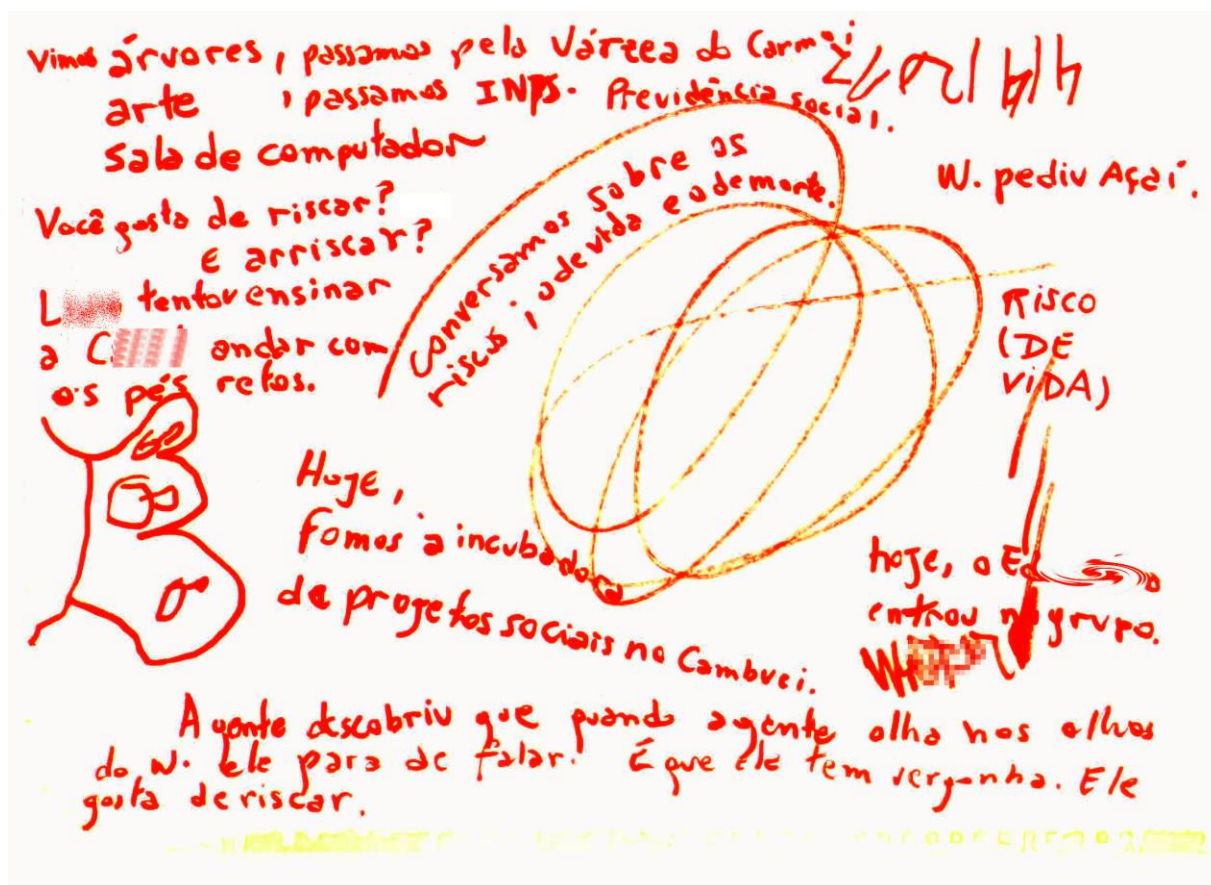 Vimos árvores, passamos pela Várzea do Carmo;
arte, passamos INPS. Previdência social.
sala de computador
W. pediu Açaí.
Você gosta de riscar?
E arriscar?
L tentou ensinar
a C andar com
os pés retos.
Conversamos sobre os
riscos, o de vida e o de morte.
RISCO
(DE
ViDA)
HojE,
fomos à incubadora
de projetos sociais no Cambuci.
hoje, o Ed o
entrou no grupo.
A gente descobriu que quando a gente olha nos olhos
do W. ele para de falar. É que ele tem vergonha. Ele
gosta de riscar.